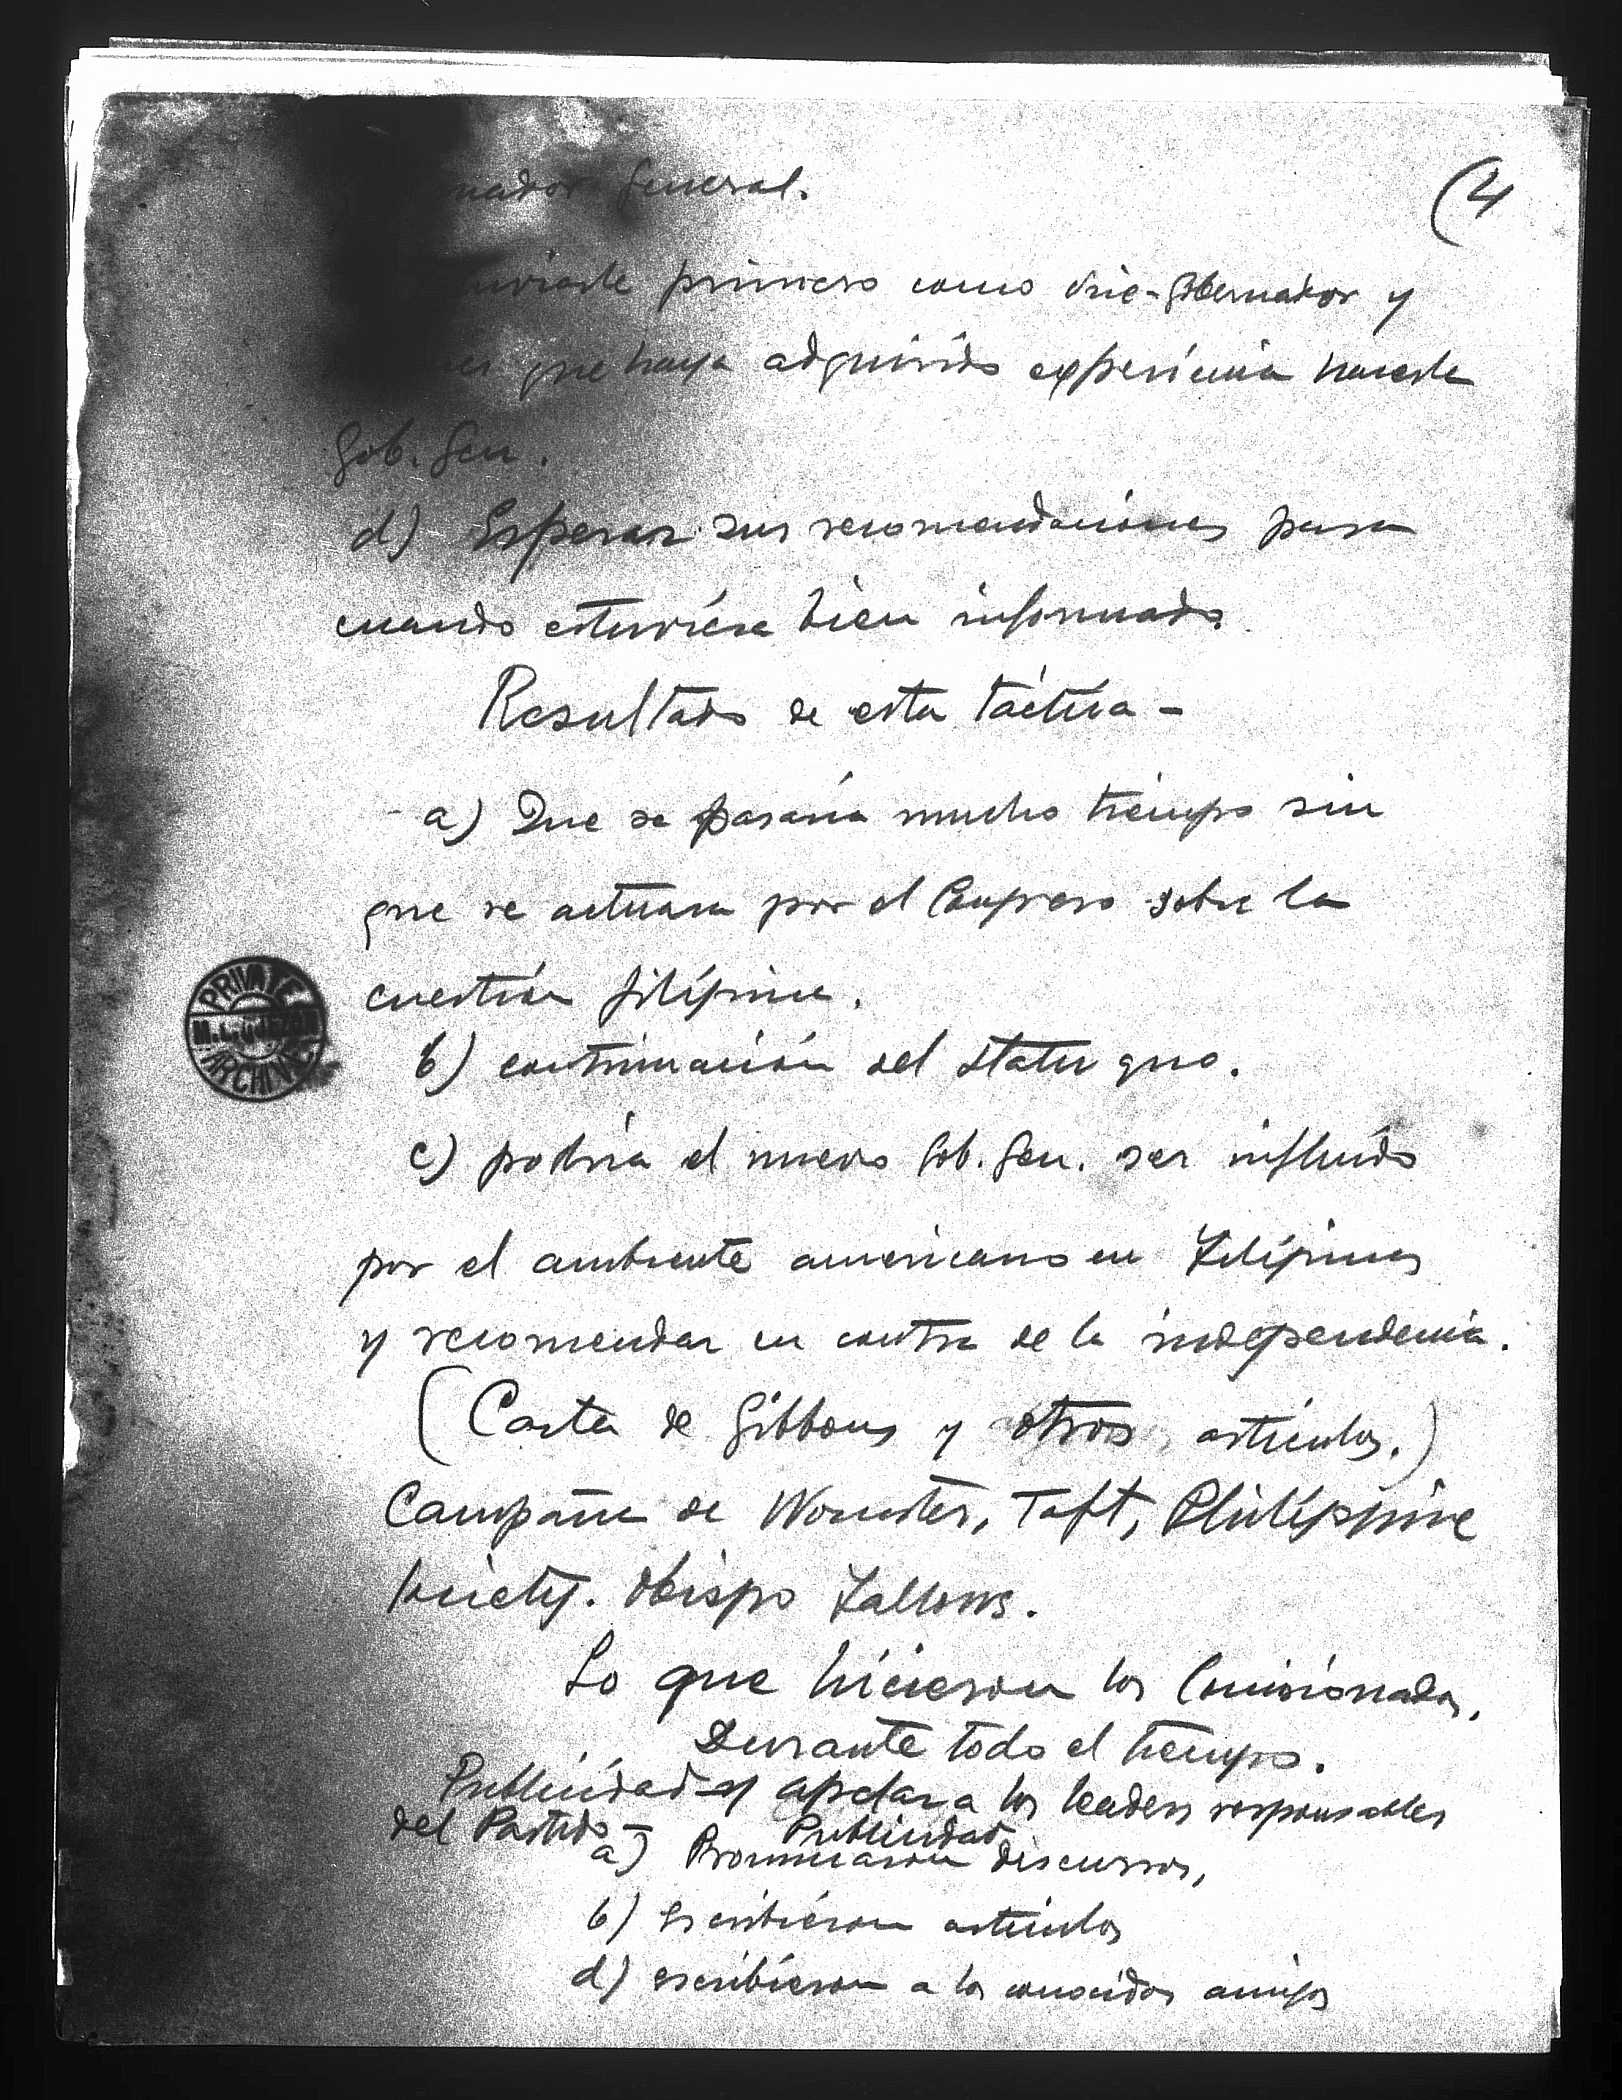 (4
nador General.
enviarle primero como vice-gobernador y
que haya adquirido experiencia hacerle
Gob. Gen.
d) Esperar sus recomendaciones para
cuando estuviera bien informado.
Resultado de esta táctica -
a) Que se pasaría mucho tiempo sin
que se actuara por el Congreso sobre la
cuestión filipina.
b) continuación del statu quo.
c) podría el nuevo Gob. Gen. ser influido
por el ambiente americano en Filipinas
y recomendar en contra de la independencia.
(Carta de Gibbons y otros artículos.)
Campaña de Worcester, Taft, Philippine
Society. Obispo Fallows.
PRIVATE
M. L. QUEZON
ARCHIVE
Lo que hicieron los Comisionados.
Durante todo el tiempo.
Publicidad y apelar a los leaders responsables
del Partido -
Publicidad
a) Pronunciaron discursos,
b) escribieron artículos
d) escribieron a los conocidos amigos